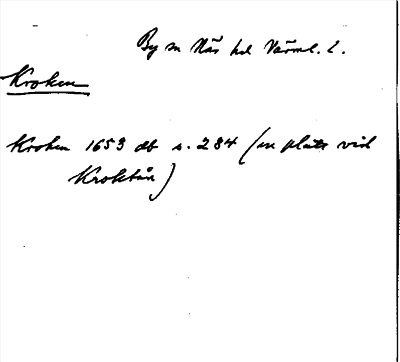 By sn Näs hd Värml. l.
Kroken
Kroken 1653 db s. 284 (en plats vid
Kroktån)